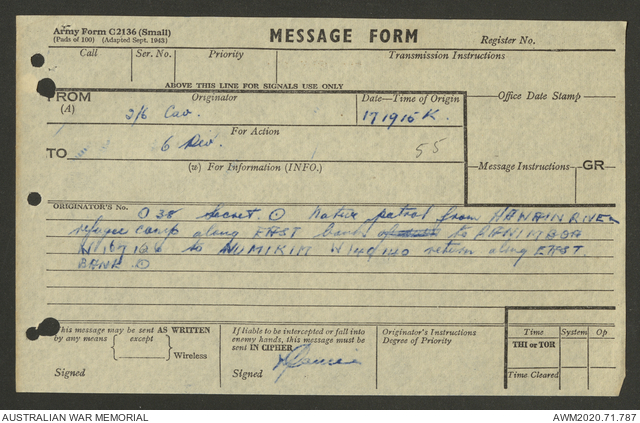 Army Form C2136 (Small)
(Pads of 100) (Adapted Sept. 1943)
MESSAGE FORM
Register No.
Call Ser. No. Priority Transmission Instructions
ABOVE THIS LINE FOR SIGNALS USE ONLY
FROM Originator Date—Time of Origin Office Date Stamp
(A) 2/6 Cav. 171915K.
For Action
TO 6 Div. 55
(w) For Information (INFO.) Message Instructions GR
ORIGINATOR'S No.
O 38 Secret. ⊙ Native patrol from HAWAIN RIVER
refugee camp along EAST bank to
to NUMIKIM W140140 return along EAST
BANK ⊙
This message may be sent AS WRITTEN
by any means except
Wireless
Signed
If liable to be intercepted or fall into
enemy hands, this message must be
sent IN CIPHER
Signed
Originator's Instructions
Degree of Priority
Time System Op
THI or TOR
Time Cleared
AUSTRALIAN WAR MEMORIAL AWM2020.71.787